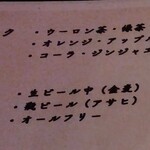 ク
・ウーロン茶・緑茶
・オレンジ・アップル
・コーラ・ジンジャエ
・生ビール中（金麦）
・瓶ビール（アサヒ）
・オールフリー